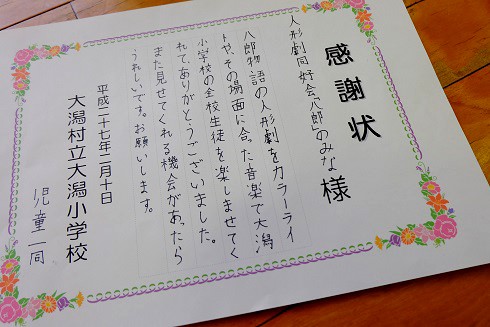 感謝状
人形劇同好会「八郎」のみな様
八郎物語の人形劇をカラーライ
トや、その場面に合った音楽で大潟
小学校の全校生徒を楽しませてく
れて、ありがとうございました。
また見せてくれる機会があったら
うれしいです。お願いします。
平成二十七年二月十日
大潟村立大潟小学校
児童一同